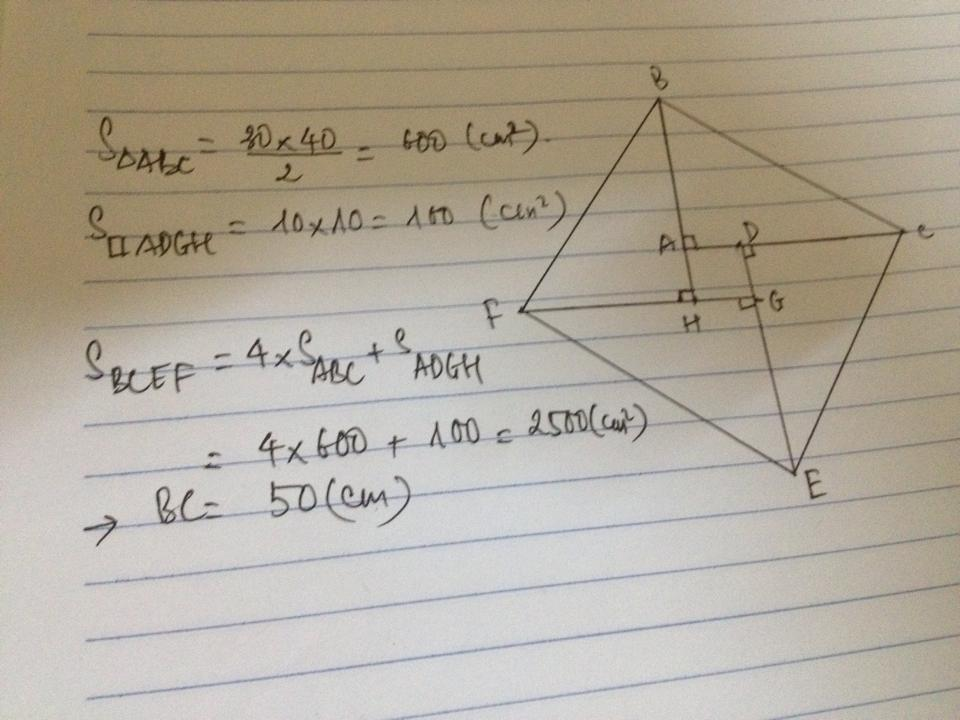 S△ABC = 30×40/2 = 600 (cm²).
S□ADGH = 10×10 = 100 (cm²)
S_BCEF = 4×S_ABC + S_ADGH
= 4×600 + 100 = 2500 (cm²)
→ BC = 50 (cm)
B
A D C
F H G
E